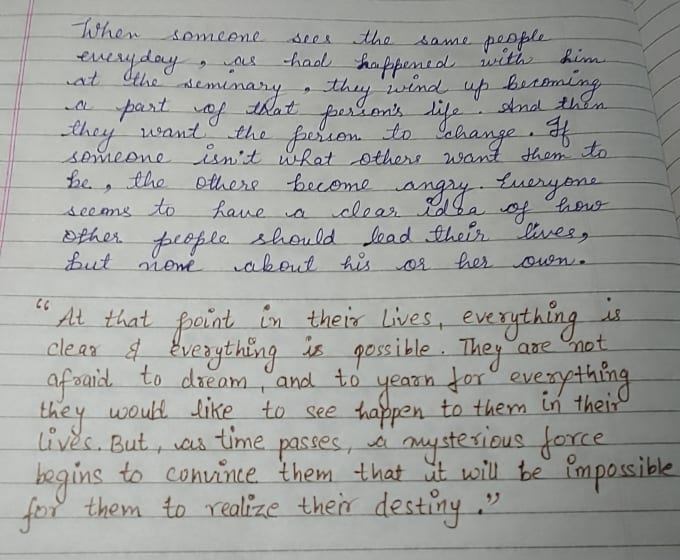 When someone sees the same people
everyday, as had happened with him
at the seminary, they wind up becoming
a part of that person's life. And then
they want the person to change. If
someone isn't what others want them to
be, the others become angry. Everyone
seems to have a clear idea of how
other people should lead their lives,
but none about his or her own.
“At that point in their lives, everything is
clear & everything is possible. They are not
afraid to dream, and to yearn for everything
they would like to see happen to them in their
lives. But, as time passes, a mysterious force
begins to convince them that it will be impossible
for them to realize their destiny.”